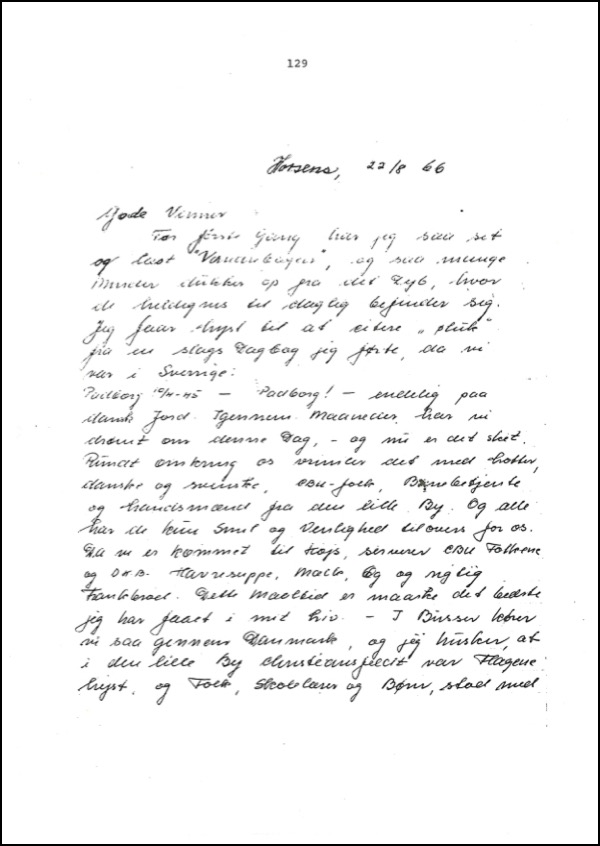 129
Horsens, 22/8 66
Gode Venner
For første Gang har jeg saa set
og læst "Vennebogen", og saa mange
Minder dukker op fra det Dyb, hvor
de heldigvis til daglig befinder sig.
Jeg faar lyst til at citere „pluk"
fra en slags Dagbog jeg førte, da vi
var i Sverrige:
Padborg -45 — Padborg! — endelig paa
dansk Jord. Igennem Maaneder har vi
drømt om denne Dag, - og nu er det sket.
Rundt omkring os vrimler det med
danske og svenske, CBU-folk, Banebetjente
og handismænd fra den lille By. Og alle
har de kun Smil og Venlighed tilovers for os.
Da vi er kommet til Køjs, serverer CBU Folkene
og Havresuppe, Mælk, Æg og rigtig
Franskbrød. Dette Maaltid er maaske det bedste
jeg har faaet i mit Liv. — I Busser kører
vi saa gennem Danmark, og jeg husker, at
i den lille By Christiansfeldt var Flagene
hejst, og Folk, Skolelærer og Børn, stod med